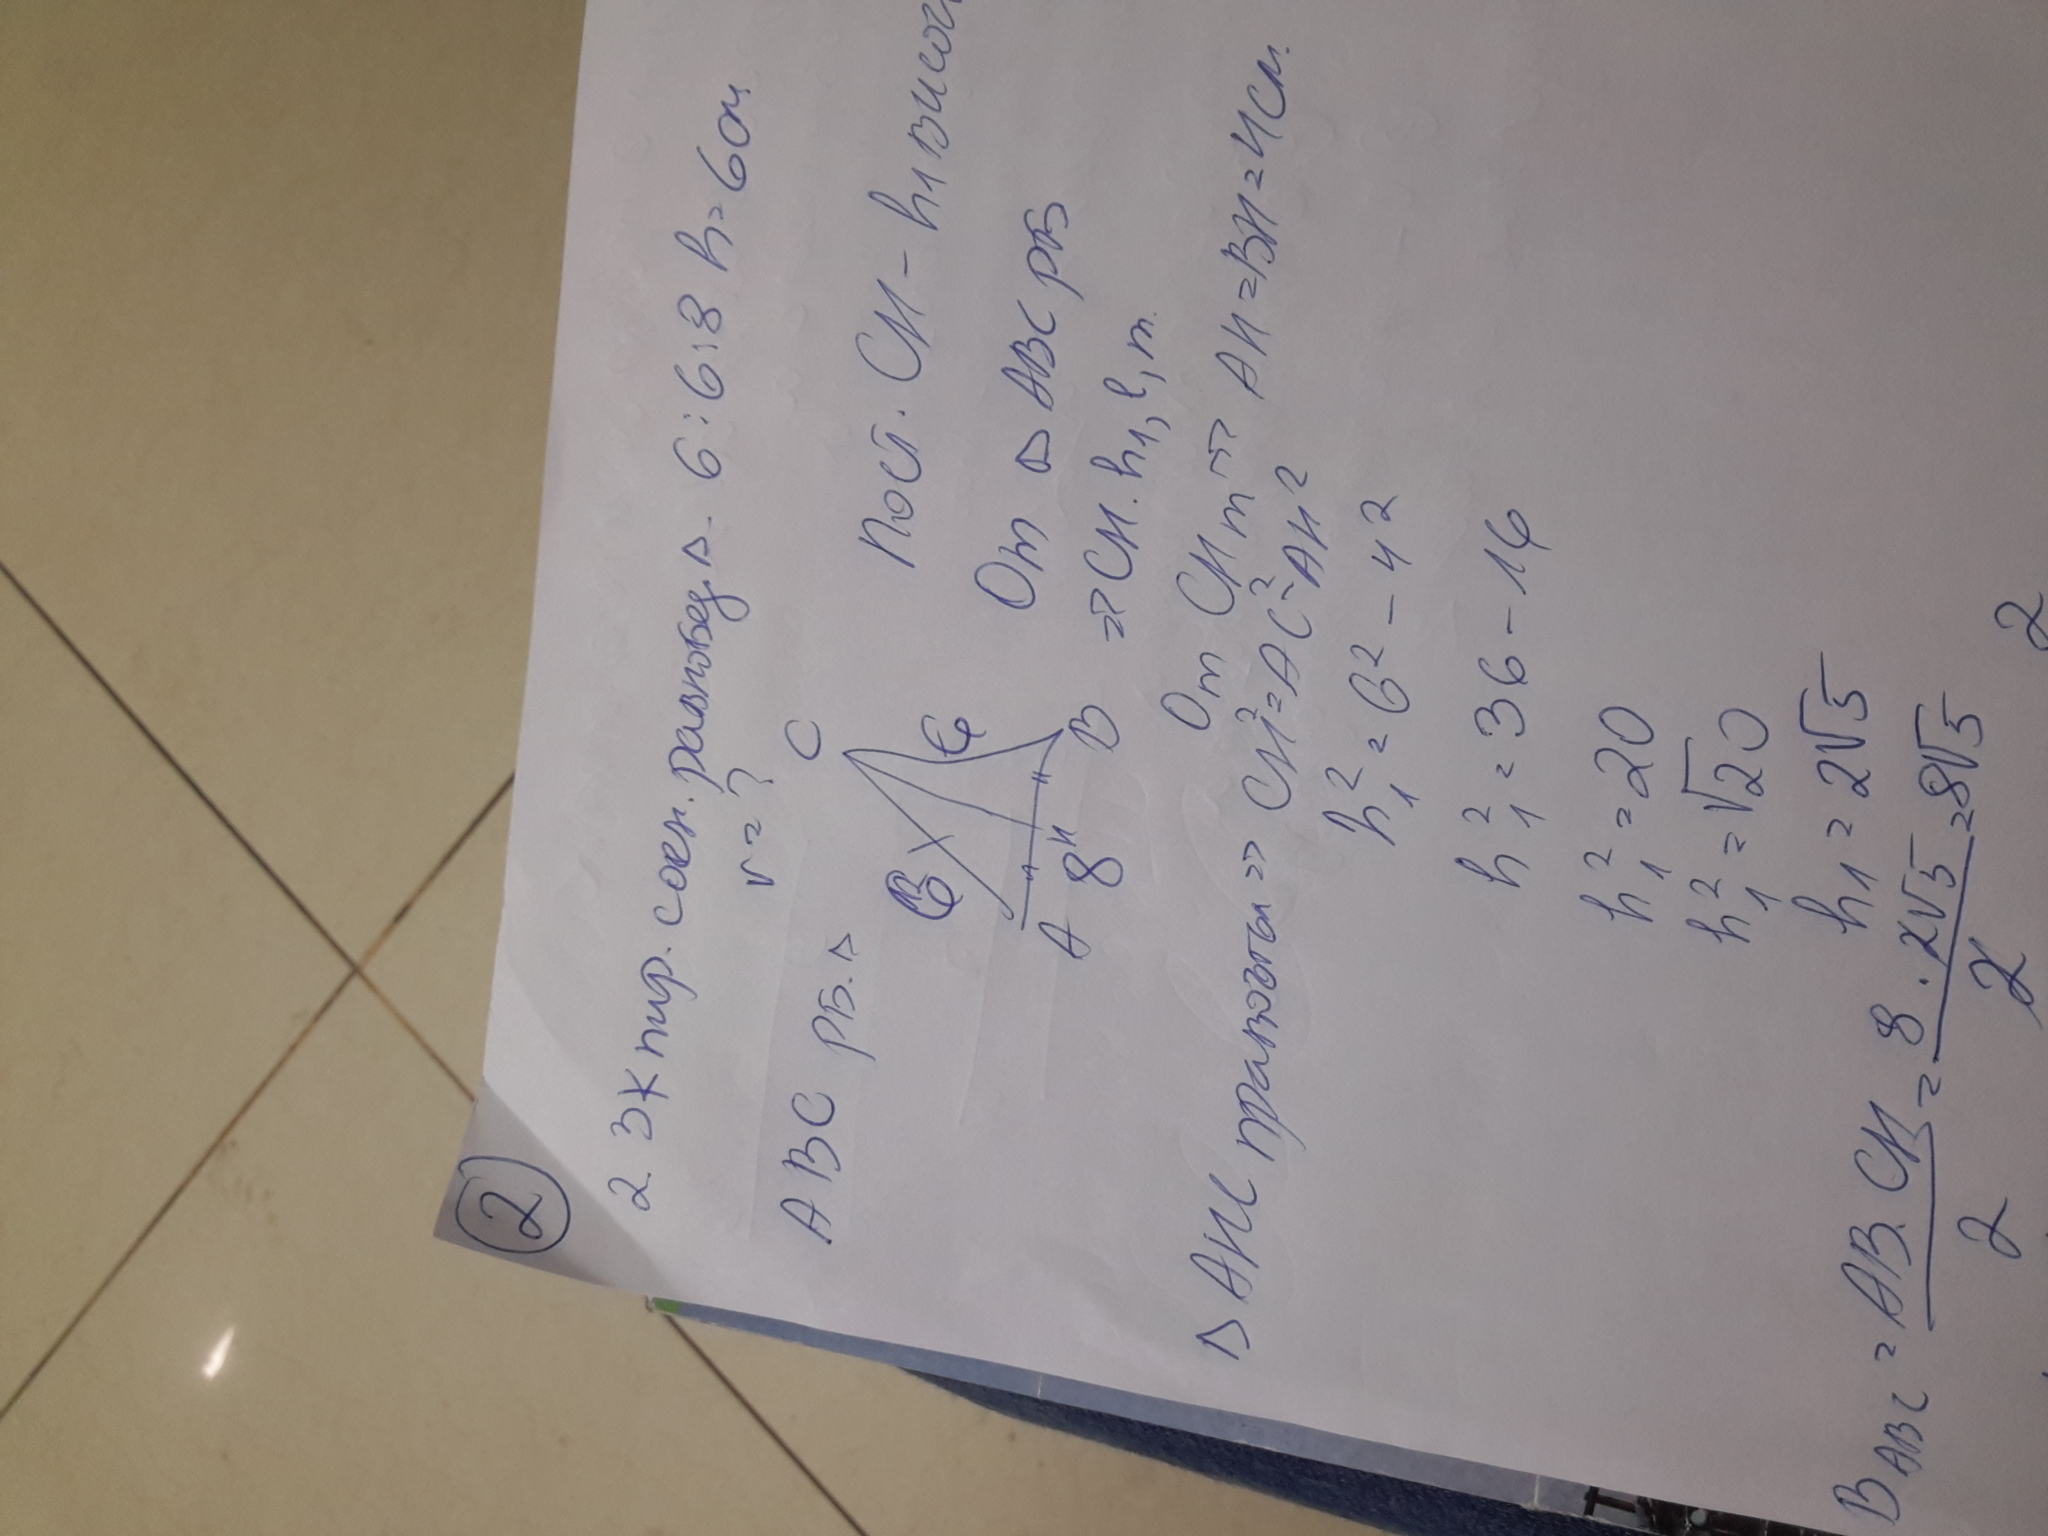 2
2. 3К пир. осн. равнобед. Δ. 6:6:8 h=6см
v=?
ABC рб. Δ
C
6
6
A 8 H B
Пост. CH - h₁ височ
От Δ ABC рб
=> CH. h₁, l, m.
От CH m => AH = BH = 4см.
Δ AHC правоъг => CH² = AC² - AH²
h₁² = 6² - 4²
h₁² = 36 - 16
h₁² = 20
h₁² = √20
h₁ = 2√5
B ABC = AB. CH / 2 = 8 . 2√5 / 2 = 8√5
2